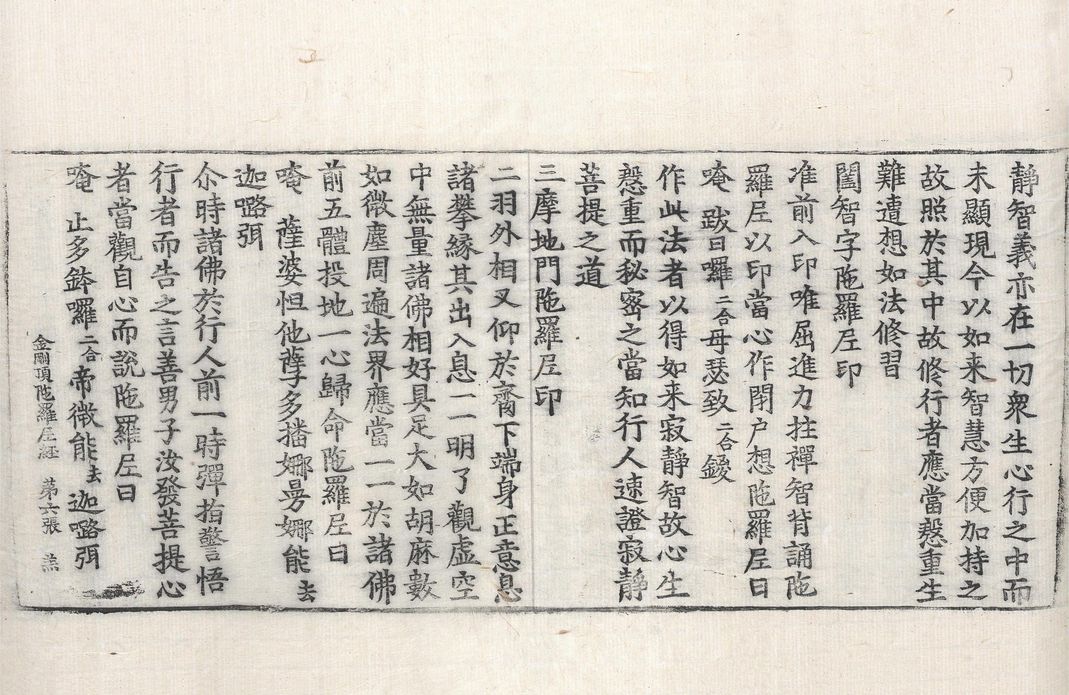 靜智義亦在一切衆生心行之中而
未顯現今以如来智慧方便加持之
故照於其中故修行者應當慇重生
難遭想如法修習
闔智字陁羅尼印
准前入印唯屈進力拄禪智背誦陁
羅尼以印當心作閉户想陁羅尼曰
唵 跋日囉二合毋瑟致二合鑁
作此法者以得如来寂靜智故心生
慇重而秘密之當知行人速證寂靜
菩提之道
三摩地門陁羅尼印
二羽外相叉仰於齊下端身正意息
諸攀緣其出入息一一明了觀虛空
中無量諸佛相好具足大如胡麻數
如微塵周遍法界應當一一於諸佛
前五體投地一心歸命陁羅尼曰
唵 薩婆怛他孽多播娜曼娜能去
迦嚕弭
尒時諸佛於行人前一時彈指警悟
行者而告之言善男子汝發菩提心
者當觀自心而說陁羅尼曰
唵 止多鉢囉二合帝微能去迦嚕弭
金剛頂陁羅尼經 第六張